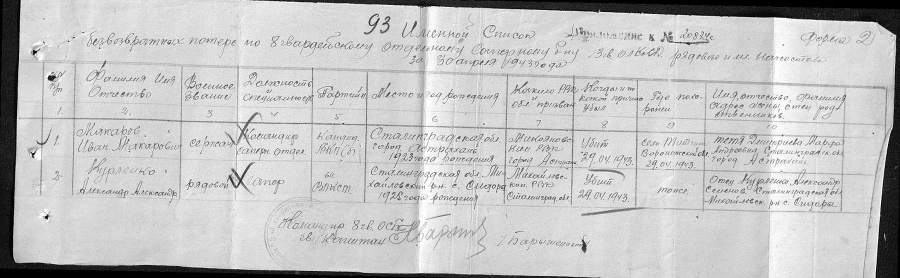 93 Именной Список Приложение к № 20824с Форма 2
безвозвратных потерь по 8 гвардейскому отдельному Саперному б-ну рядовые и мл. начсостав
за 30 апреля 1943 года
№ п/п Фамилия Имя Отчество Военное звание Должность и специальность Партийн. Место и год рождения Каким РВК был призван Когда и по какой причине убыл Где похоронен Имя, отчество, фамилия адрес жены, отец, родственников.
1. 2 3 4 5 6 7 8 9 10
1. Макаров Иван Макарович сержант Командир саперн. отдел. Кандид. ВКП(б) Сталинградская об. город Астрахань 1923 года рождения РВК город Астрах. Убит 29.04.1943. село Воронежской об. 29.04.1943. тетя Дмитриева Марфа Андреевна Сталинградская об. город Астрахань
2. Куряенко Александр Александр. рядовой Сапер Сталинградская об. Михайловск. рн. с. Сидоры года рождения Михайловск. РВК Сталинград об. Убит 29.04.1943. тоже. Отец Александр Семенов. Сталинградская об. Михайловск. рн. с. Сидоры.
Командир 8 гв. ОСБ
гв. Капитан